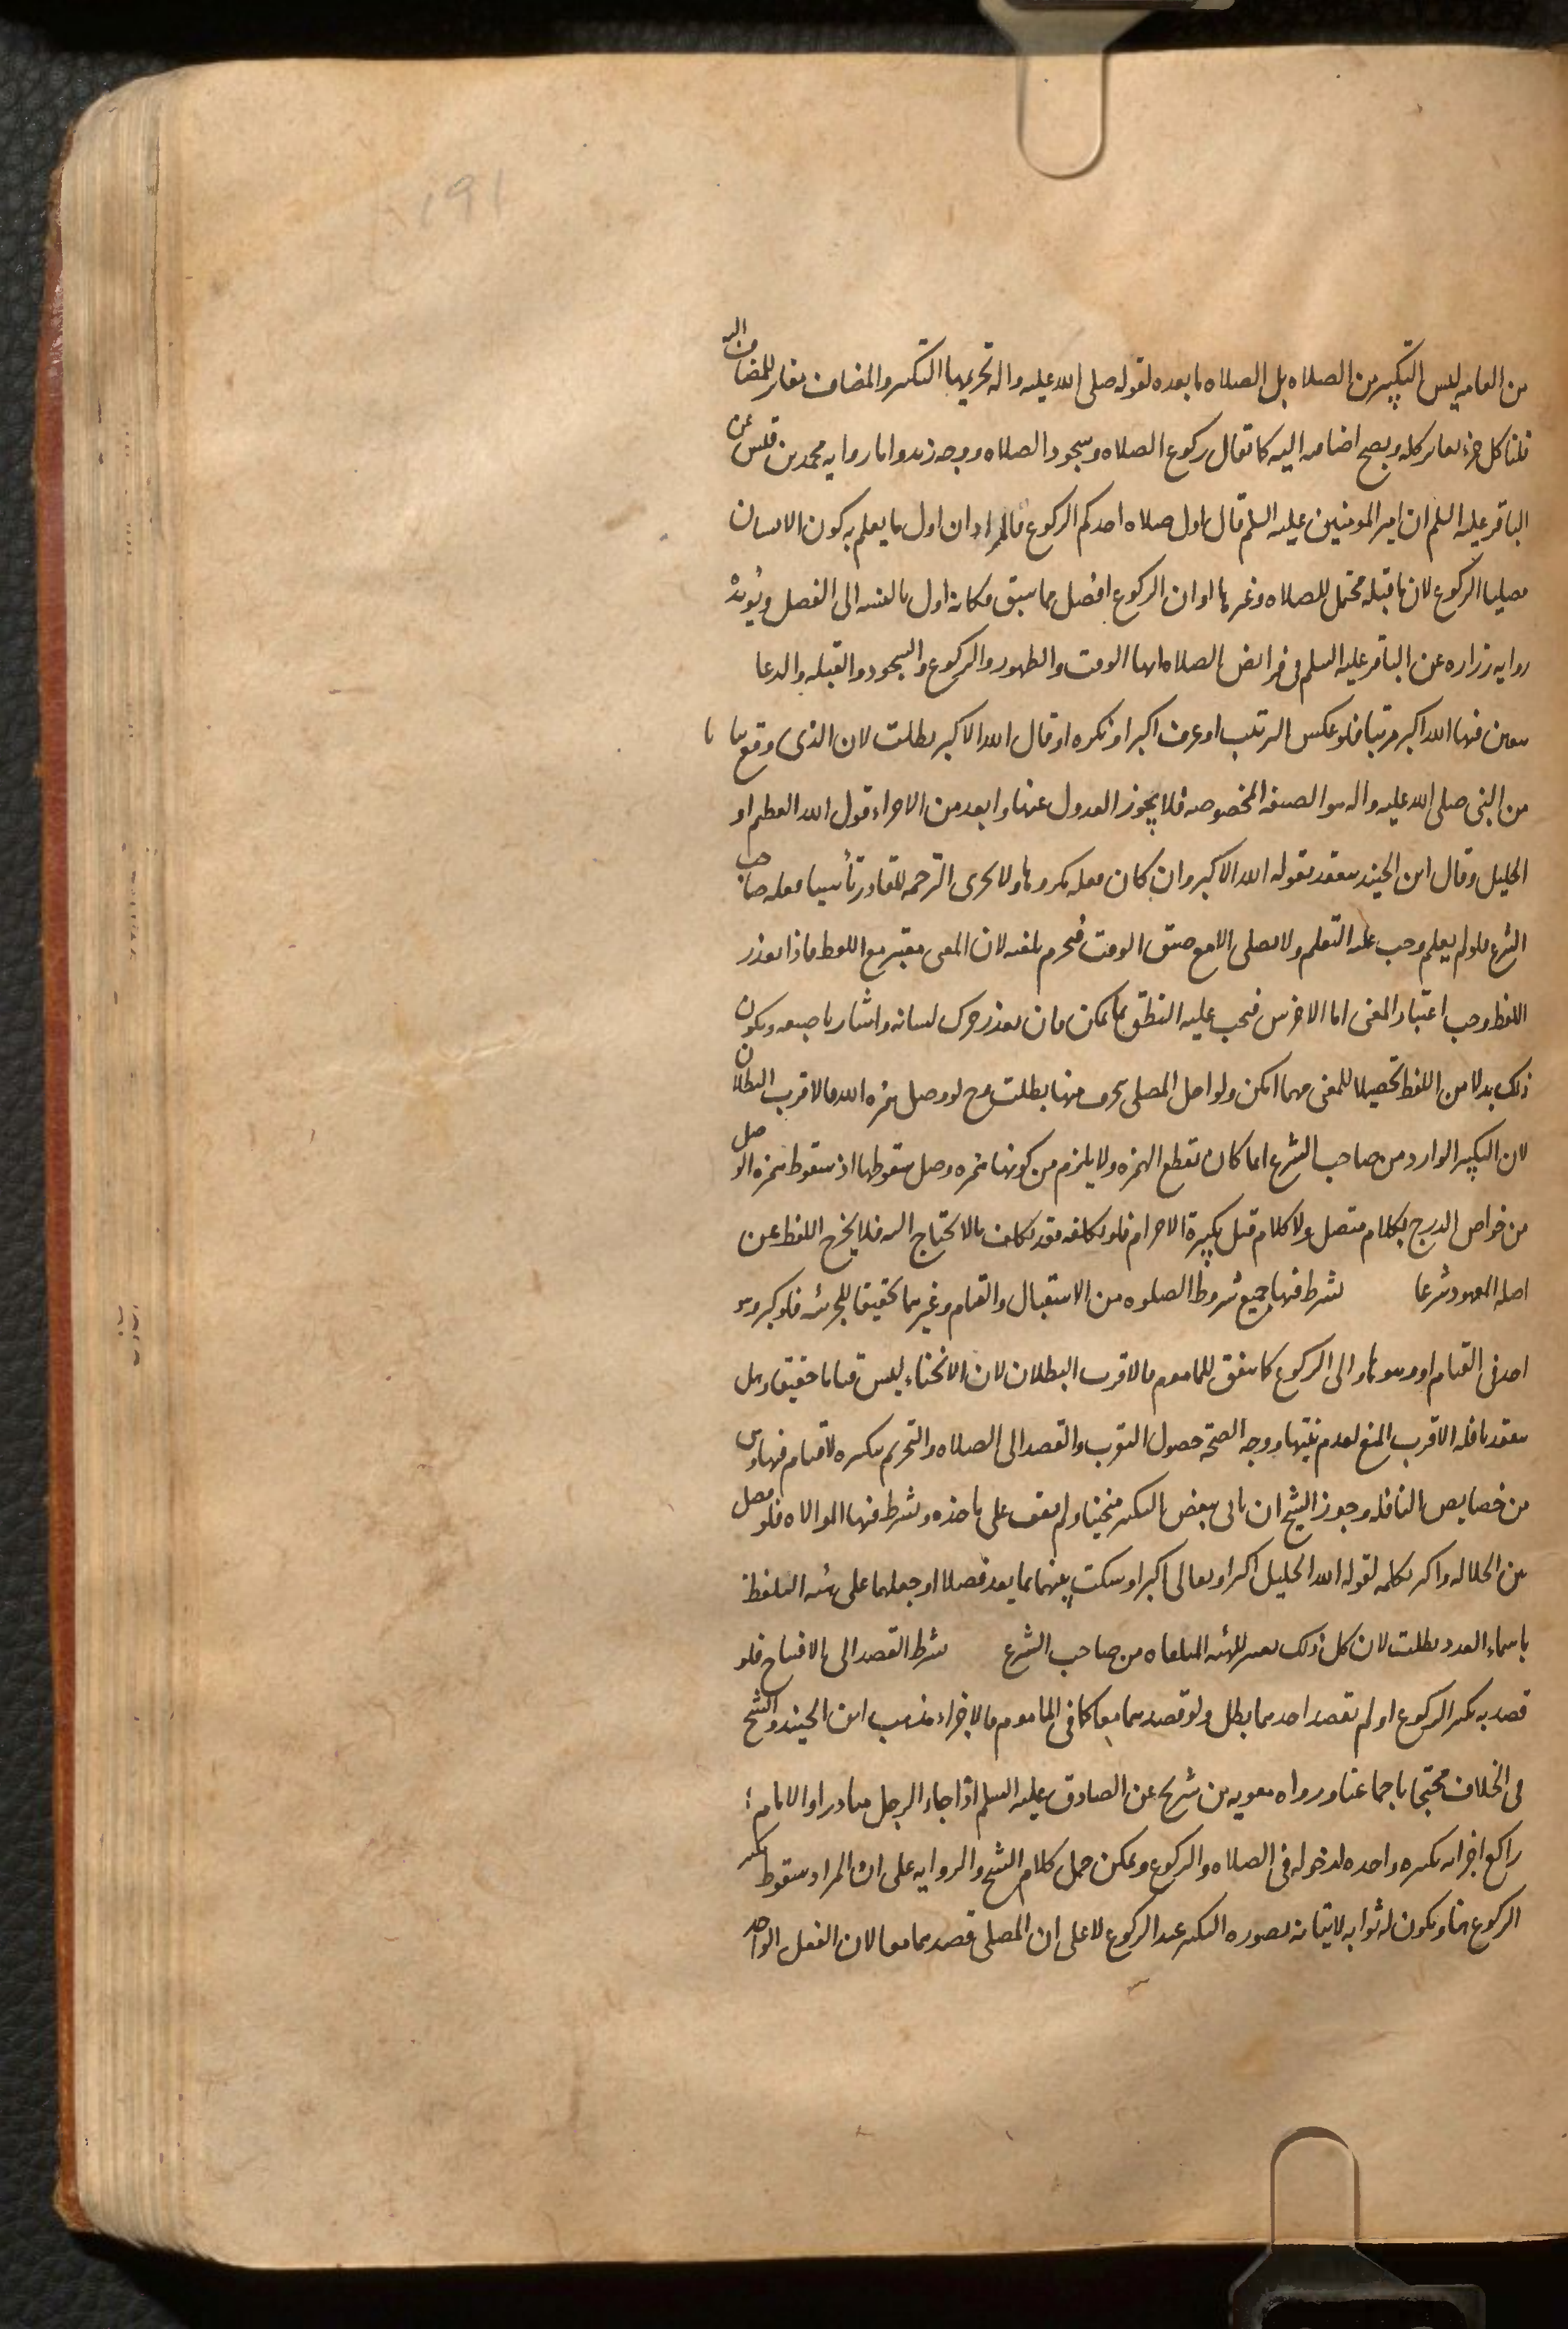 191
من العامه ليس التكبير من الصلاه بل الصلاه ما بعده لقوله صلى الله عليه واله تحريمها التكبير والمضاف مغاير للمضاف اليه
قلنا كل جزء يغاير كله ويصح اضافه اليه كما تقال ركوع الصلاه وسجود الصلاه ووجه زيد واما روايه محمد بن قيس عن
الباقر عليه السلم ان امير المومنين عليه السلم قال اول صلاه احدكم الركوع فالمراد ان اول ما يعلم به كون الانسان
مصليا الركوع لان ما قبله محتمل للصلاه وغيرها او ان الركوع افضل مما سبق فكانه اول بالنسبه الى الفضل ويؤيده
روايه زراره عن الباقر عليه السلم فى فرايض الصلاه انها الوقت والطهور والركوع والسجود والقبله والدعا
سعين فيها الله اكبر مرتبا فلو عكس الترتيب او عرف اكبر او نكره او قال الله الاكبر بطلت لان الذى وقع بيانا
من النبى صلى الله عليه واله هو الصيغه المخصوصه فلا يجوز العدول عنها وابعد من الاجزاء قول الله العظيم او
الجليل وقال ابن الجنيد ينعقد بقوله الله الاكبر وان كان فعله مكروها ولا تجزى الترجمه للقادر تأسيا بفعله صاحب
الشرع فلو لم يعلم وجب عليه التعلم ولا يصلى الا مع ضيق الوقت فيحرم بلغته لان المعنى معتبر مع اللفظ فاذا تعذر
اللفظ وجب اعتبار المعنى اما الاخرس فيجب عليه النطق بما يمكن فان تعذر حرك لسانه واشار باصبعه ويكون
ذلك بدلا من اللفظ تحصيلا للمعنى مهما امكن ولو اخل المصلى بحرف منها بطلت وح لو وصل همزه الله فالاقرب البطلان
لان التكبير الوارد من صاحب الشرع انما كان بقطع الهمزه ولا يلزم من كونها همزه وصل سقوطها اذ سقوط همزه الوصل
من خواص الدرج بكلام متصل ولا كلام قبل تكبيرة الاحرام فلو تكلفه فقد تكلف ما لا يحتاج اليه فلا يخرج اللفظ عن
اصله المعهود شرعا يشترط فيها جميع شروط الصلوه من الاستقبال والقيام وغيرهما تحقيقا للجزئيه فلو كبر وهو
اخذ فى القيام او وهو هاو الى الركوع كما يتفق للماموم فالاقرب البطلان لان الانحناء ليس قياما حقيقا وهل
ينعقد نافله الاقرب المنع لعدم نيتها ووجه الصحة حصول التقرب والقصد الى الصلاه والتحريم بتكبيره لا قيام فيها وهى
من خصايص النافله وجوز الشيخ ان ياتى ببعض التكبير منحنيا ولم نقف على ماخذه ويشترط فيها الموالاه فلو فصل
بين الجلاله واكبر بكلمه لقوله الله الجليل اكبر او تعالى اكبر او سكت بينهما بما يعد فصلا او جعلهما على هيئه التلفظ
باسماء العدد بطلت لان كل ذلك تغيير للهيئه المتلقاه من صاحب الشرع يشترط القصد الى الافتتاح فلو
قصد به تكبير الركوع او لم يقصد احدهما بطل ولو قصدهما معا كما فى الماموم فالاجزاء مذهب ابن الجنيد والشيخ
فى الخلاف محتجا باجماعنا ورواه معويه بن شريح عن الصادق عليه السلم اذا جاء الرجل مبادرا والامام
راكع اجزاته تكبيره واحده لدخوله فى الصلاه والركوع ويمكن حمل كلام الشيخ والروايه على ان المراد سقوط تكبير
الركوع هنا ويكون له ثوابه لاتيانه بصوره التكبير عند الركوع لا على ان المصلى قصدهما معا لان الفعل الواحد